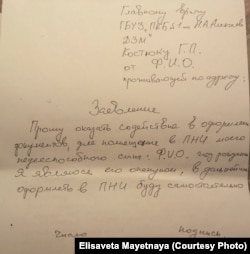 Главному врачу
ГБУЗ „ПКБ №1
ДЗМ"
Костюку Г.П.
от Ф.И.О.
проживающей по адресу:
Заявление
Прошу оказать содействие в оформлении
документов, для помещения в ПНИ моего
недееспособного сына - Ф.И.О. год рождения
Я являюсь его опекуном, в дальнейшем
оформлять в ПНИ буду самостоятельно
Число Подпись
Elisaveta Mayetnaya (Courtesy Photo)